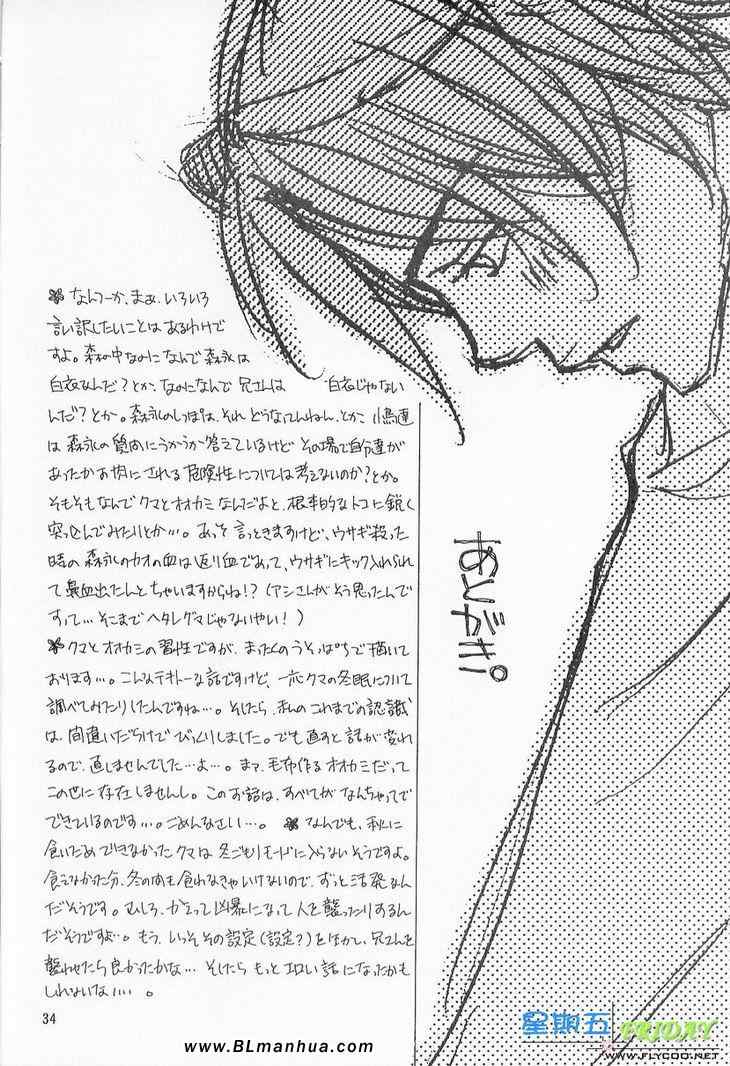 あとがき。
* なんつーか、まぁ、いろいろ
言い訳したいことはあるわけで
すよ。森の中なのになんで森永は
白衣なんだ?とか、なのになんで兄さんは 白衣じゃない
んだ?とか。森永のしっぽは、それどうなってんねん、とか 小鳥達
は森永の質問にうかうか答えているけど その場で自分達が
あったかお肉にされる危険性については考えないのか?とか。
そもそもなんでクマとオオカミなんだよと、根本的なトコに鋭く
突っ込んでみたりとか…。あっそ 言っときますけど、ウサギ殺った
時の森永のカオの血は返り血であって、ウサギにキック入れられ
て鼻血出たんとちゃいますからね!?(アシさんがそう思ったんで
すって…そこまでヘタレグマじゃないやい!)
* クマとオオカミの習性ですが、まったくのうそっぱちで描いて
おります…。こんなテキトーな話ですけど、一応クマの冬眠について
調べてみたりしたんですね…。そしたら、私のこれまでの認識
は、間違いだらけでびっくりしました。でも直すと話が変わ
るので、直しませんでした…よ…。まァ、毛布作るオオカミだって
この世に存在しませんし。このお話は、すべてがなんちゃってで
できているのです…。ごめんなさい…。 * なんでも、秋に
食いだめできなかったクマは冬ごもりモードに入らないそうですよ。
食えなかった分、冬の間も食わなきゃいけないので、ずっと活発なん
だそうです。むしろ、かえって凶暴になって人を襲ったりするん
だそうですよ…。もう、いっそその設定(設定?)を活かし、兄さんを
襲わせたら良かったかな… そしたらもっとエロい話になったかも
しれないな…。
34
www.BLmanhua.com
星期五 FRIDAY
WWW.FLYCOO.NET